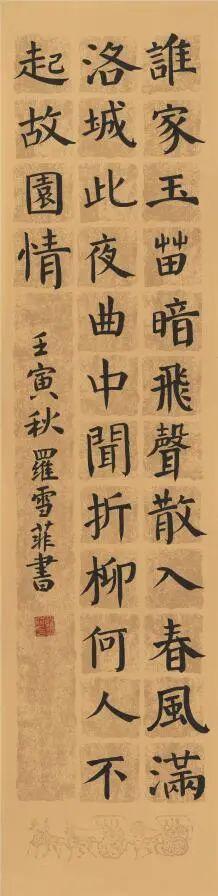 誰家玉笛暗飛聲散入春風滿
洛城此夜曲中聞折柳何人不
起故園情
壬寅秋 羅雪菲書